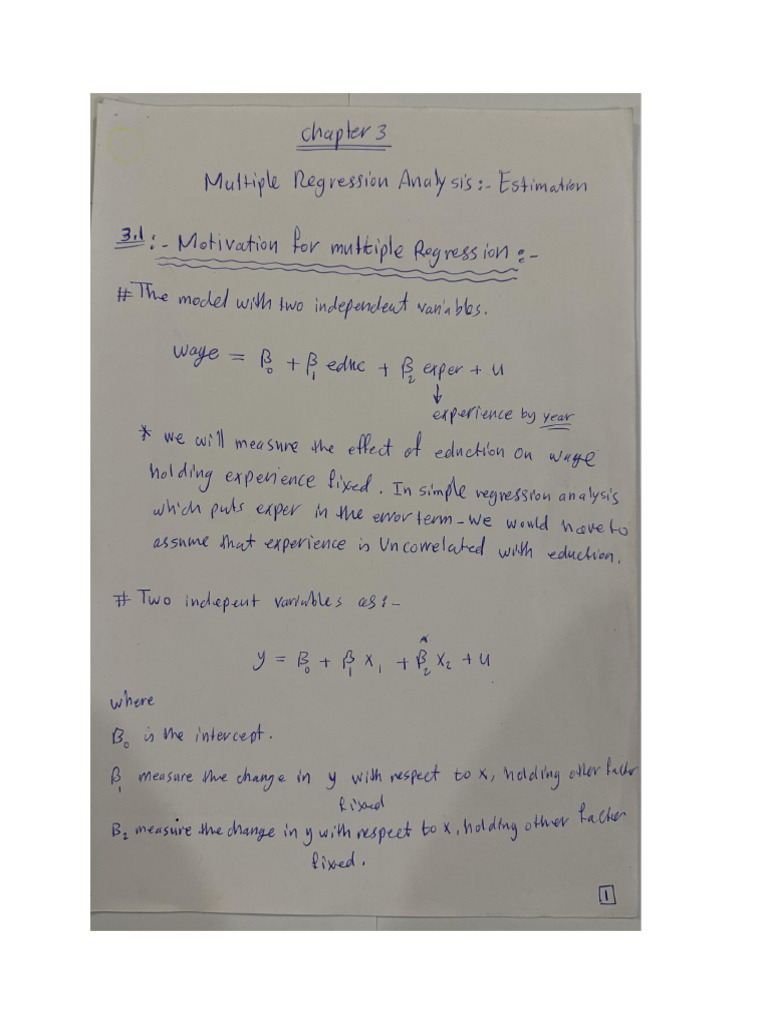 Chapter 3
Multiple Regression Analysis:- Estimation
3.1:- Motivation for multiple Regression:-
# The model with two independent variables.
wage = β₀ + β₁ educ + β₂ exper + u
↓
experience by year
* we will measure the effect of eduction on wage
holding experience fixed. In simple regression analysis
which puts exper in the error term - we would have to
assume that experience is Uncorrelated with eduction.
# Two indepent variables as:-
y = β₀ + β₁ x₁ + β₂ x₂ + u
where
β₀ is the intercept.
β₁ measure the change in y with respect to x, holding other factor
fixed
β₂ measure the change in y with respect to x, holding other factor
fixed.
1